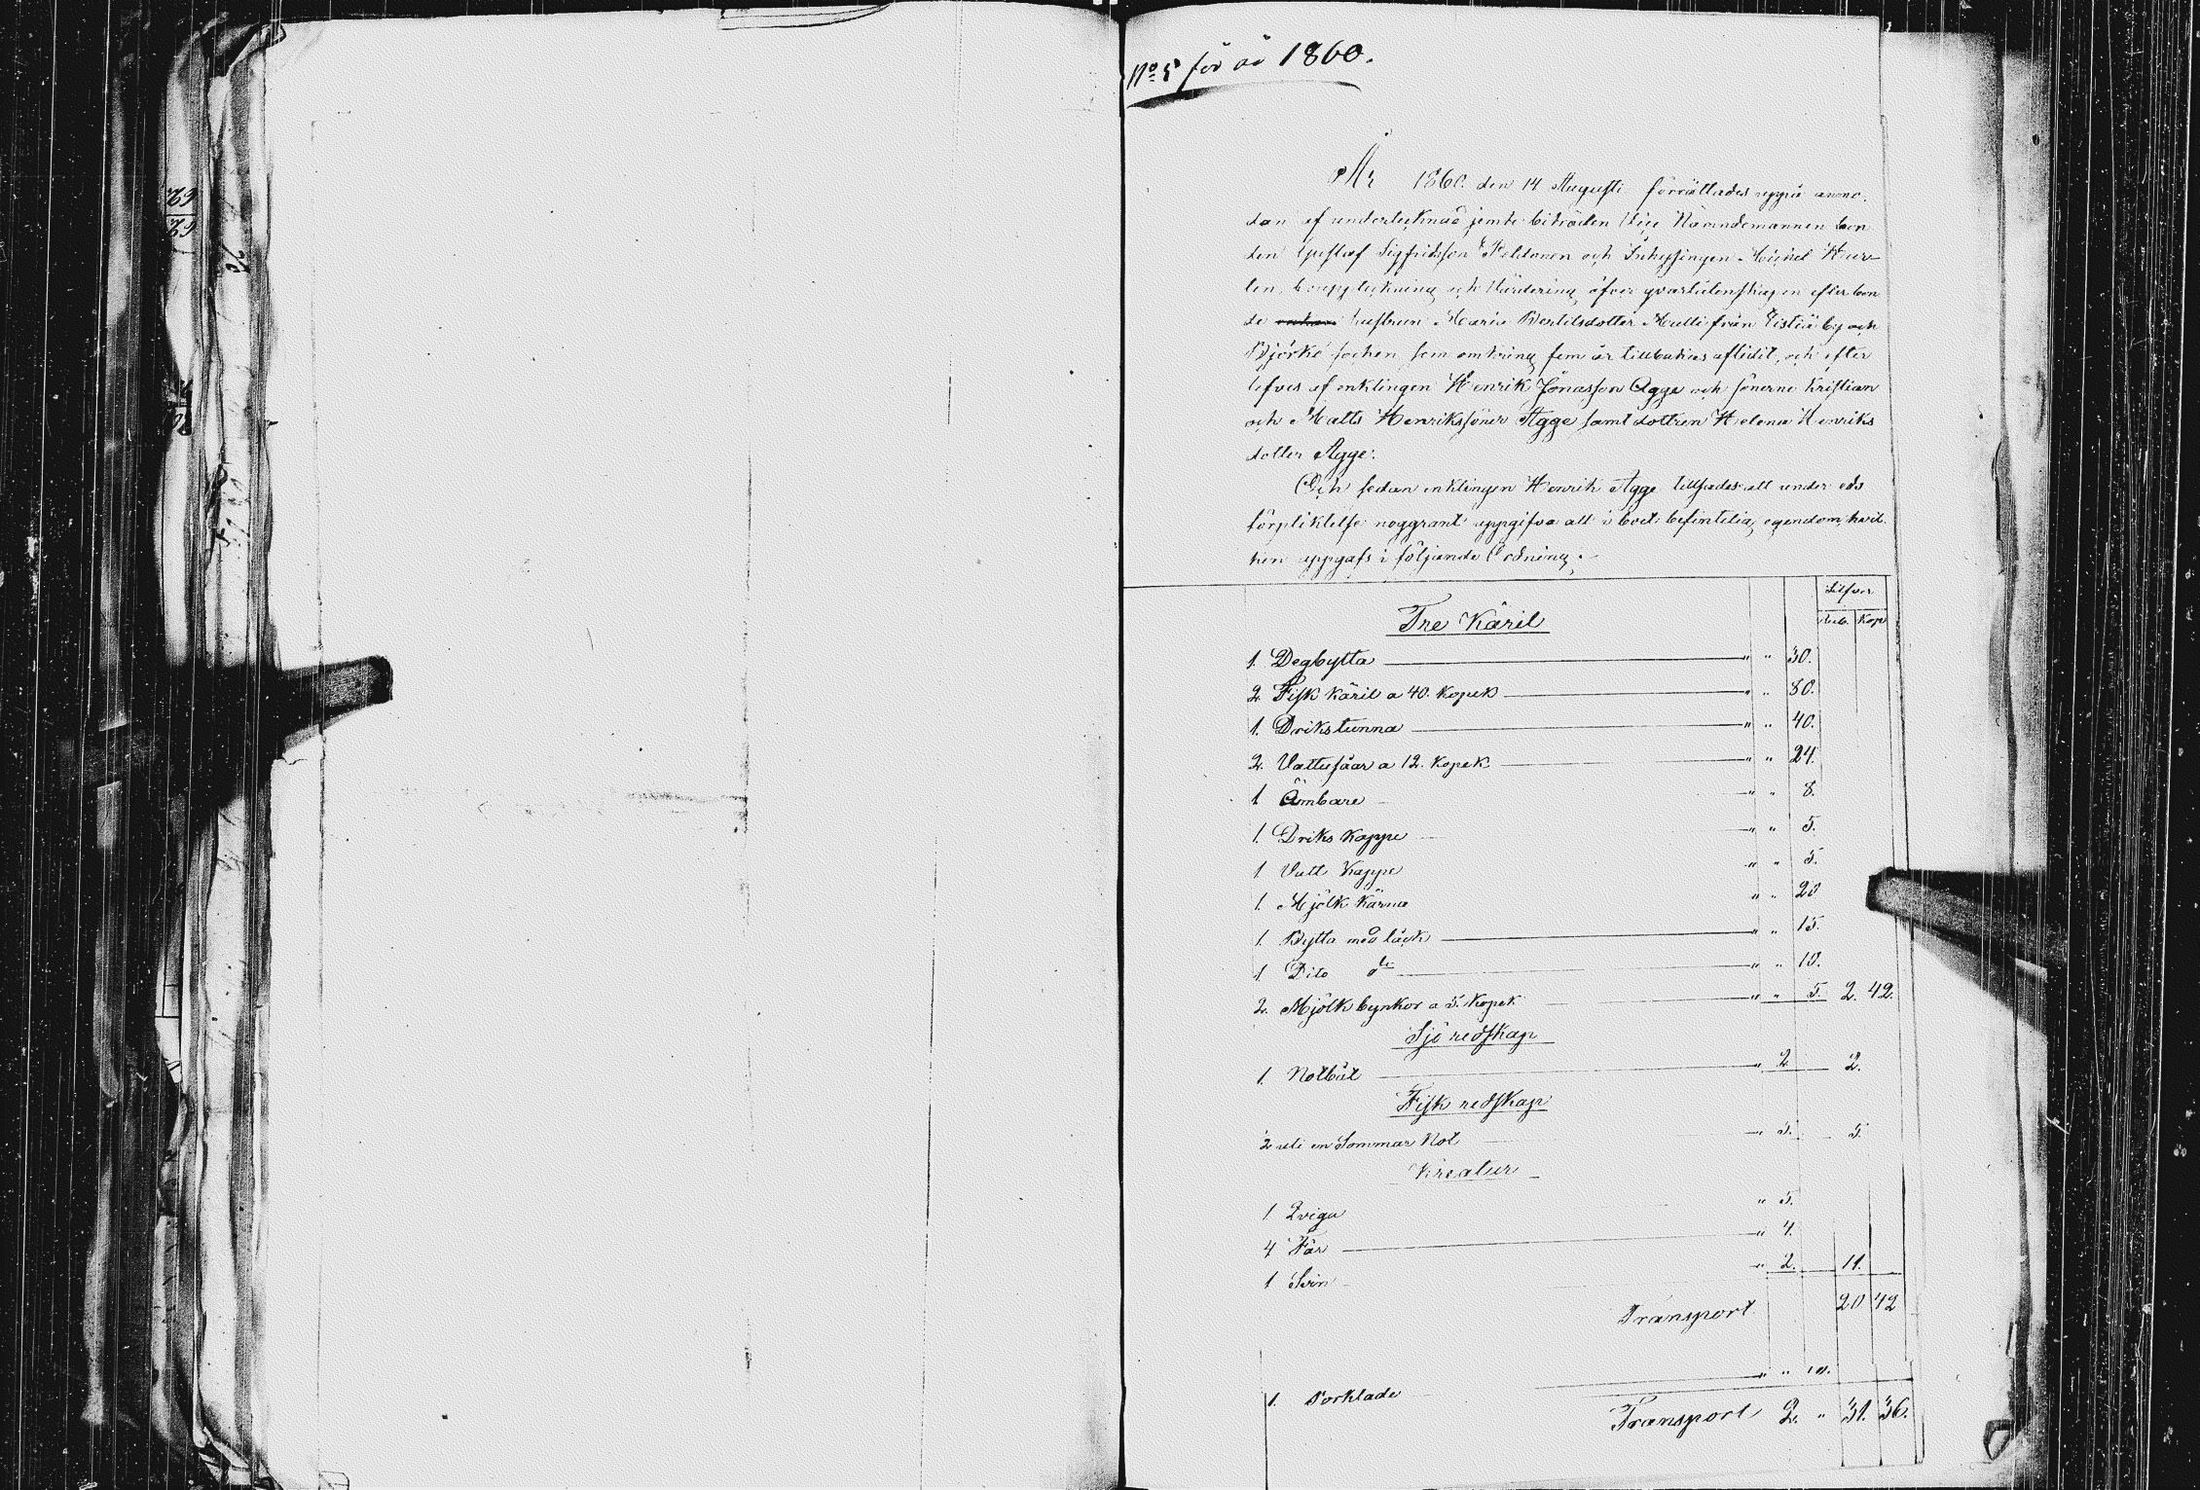 No 5 för år 1860.
År 1860. den 14 Augusti förrättades uppå anmo-
dan af undertecknad jemte biträden Nämndemannen bon
den Gustaf Sigfridsson Peltonen och Inhysingen Michel
uppteckning och Värdering öfver qvarlåtenskapen efter bon
de hustrun Maria Bertilsdotter Mulli från by och
Björkö sochen som omkring fem år tillbakas aflidit, och efter
lefves af enklingen Henrik Jönasson Agge och sönerne Kristian
och Matts Henrikssöner Agge samt dottren Helena Henriks
dotter Agge.
Och sedan enklingen Henrik Agge tillsades att under eds
förpliktelse noggrant uppgifva all i boet befintelig egendom, hvil-
ken uppgafs i följande Ordning:
Silfver
Rub. Kop
Tre Käril
1. Degbytta " " 30.
2. Fisk käril a 40. kopek " " 80.
1. Drikstunna " " 40.
2. Vattusåar a 12. kopek " " 24.
1 Ämbare " " 8.
1. Driks Kappe " " 5.
1 Vatt Kappe " " 5.
1. Mjölk Kärna " " 20
1. Bytta med läck " " 15.
1 Dito do " " 10.
2. Mjölk bynkor a 5. kopek " " 5. 2. 42.
Sjö redskap
1. Notbåt " 2 2.
Fisk redskap
2 uti en Sommar Not " 5. 5.
Kreatur
1 Qviga " 5.
4 Får " 4.
1 Svin " 2. 11.
Transport 20 42
1. Torklade " " 10.
Transport 2. " 31. 36.